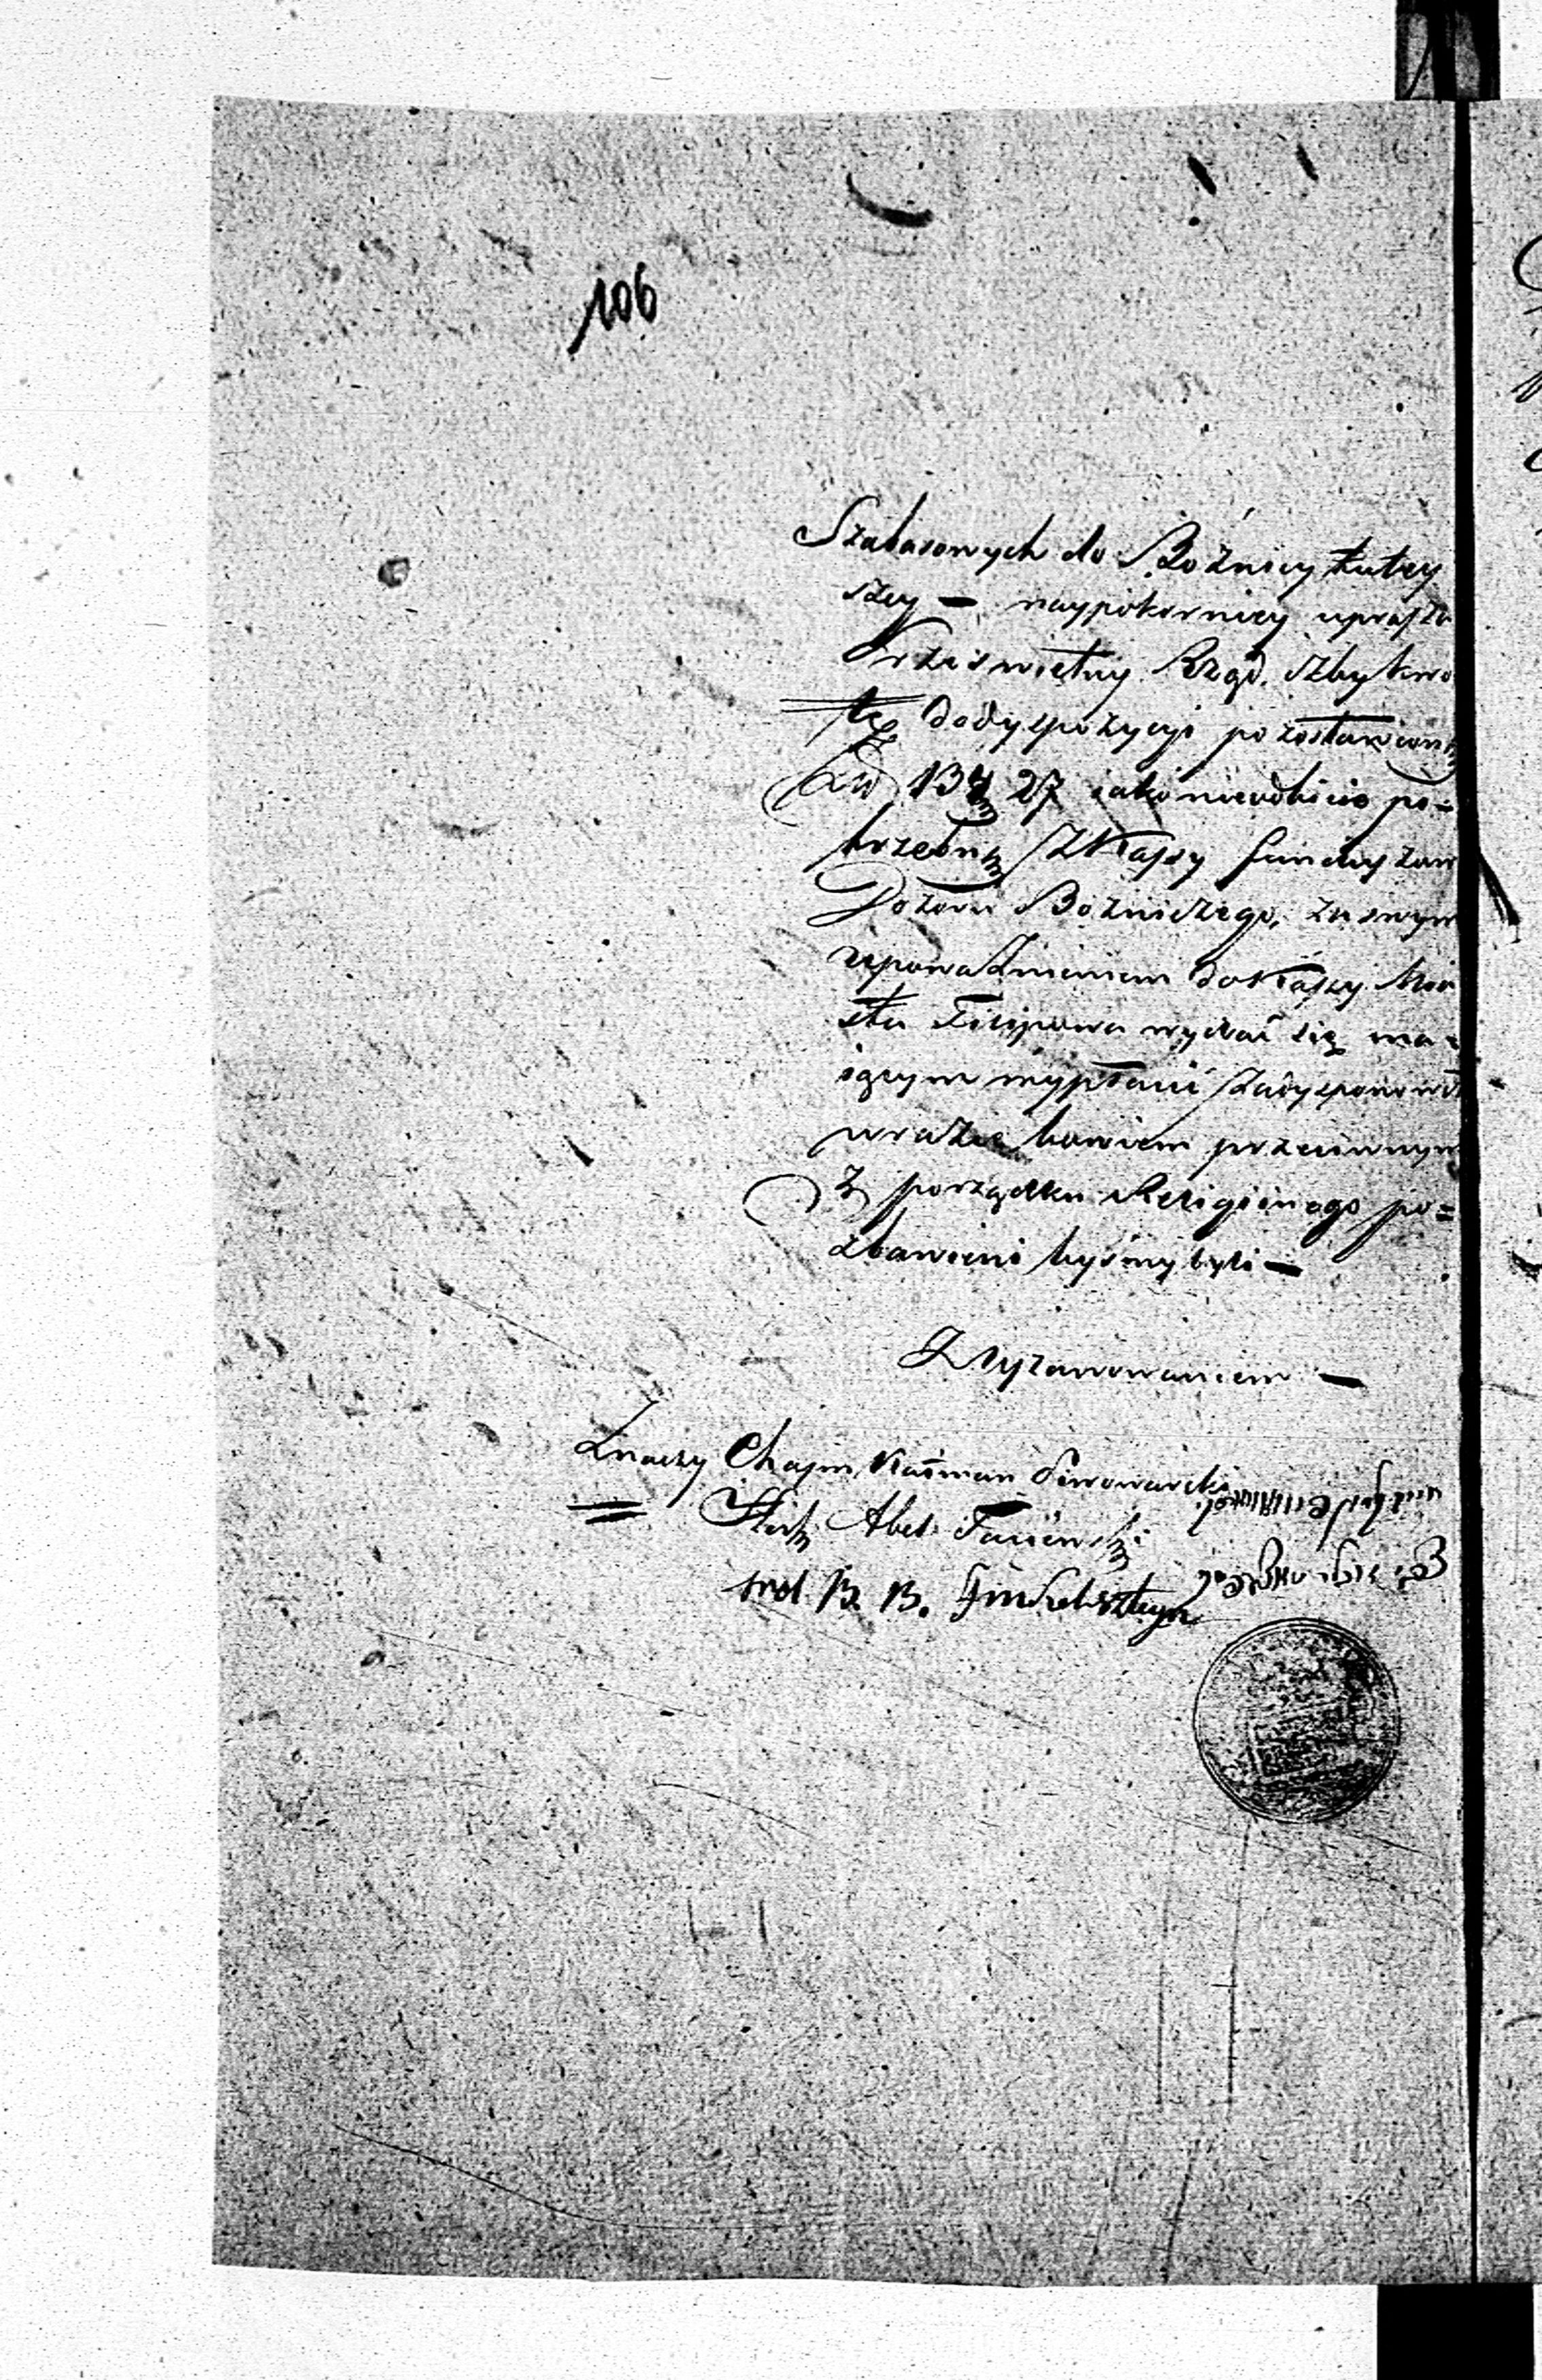 106
Szabasowych do Bóżnicy tutey
szey — naypokorniey uprasza
Prześwietny Rząd, ażby kwo
tę do dyspozycyi pozostawioną
Zł 134 27 iako nieodbicie po=
trzebną z Kassy funduszow
Dozoru Bożniczego, za swym
upoważnieniem do Kassy Mia
sta Filipowa wydać się ma=
iącym wypłacić zadysponował
w razie bowiem przeciwnym
z porządku Religiinego po=
zbawieni byśmy byli —
Z uszanowaniem —
Znaczy Chajm Kałman Piwowarski
= Abel
sad B. B. Finkelszteyn